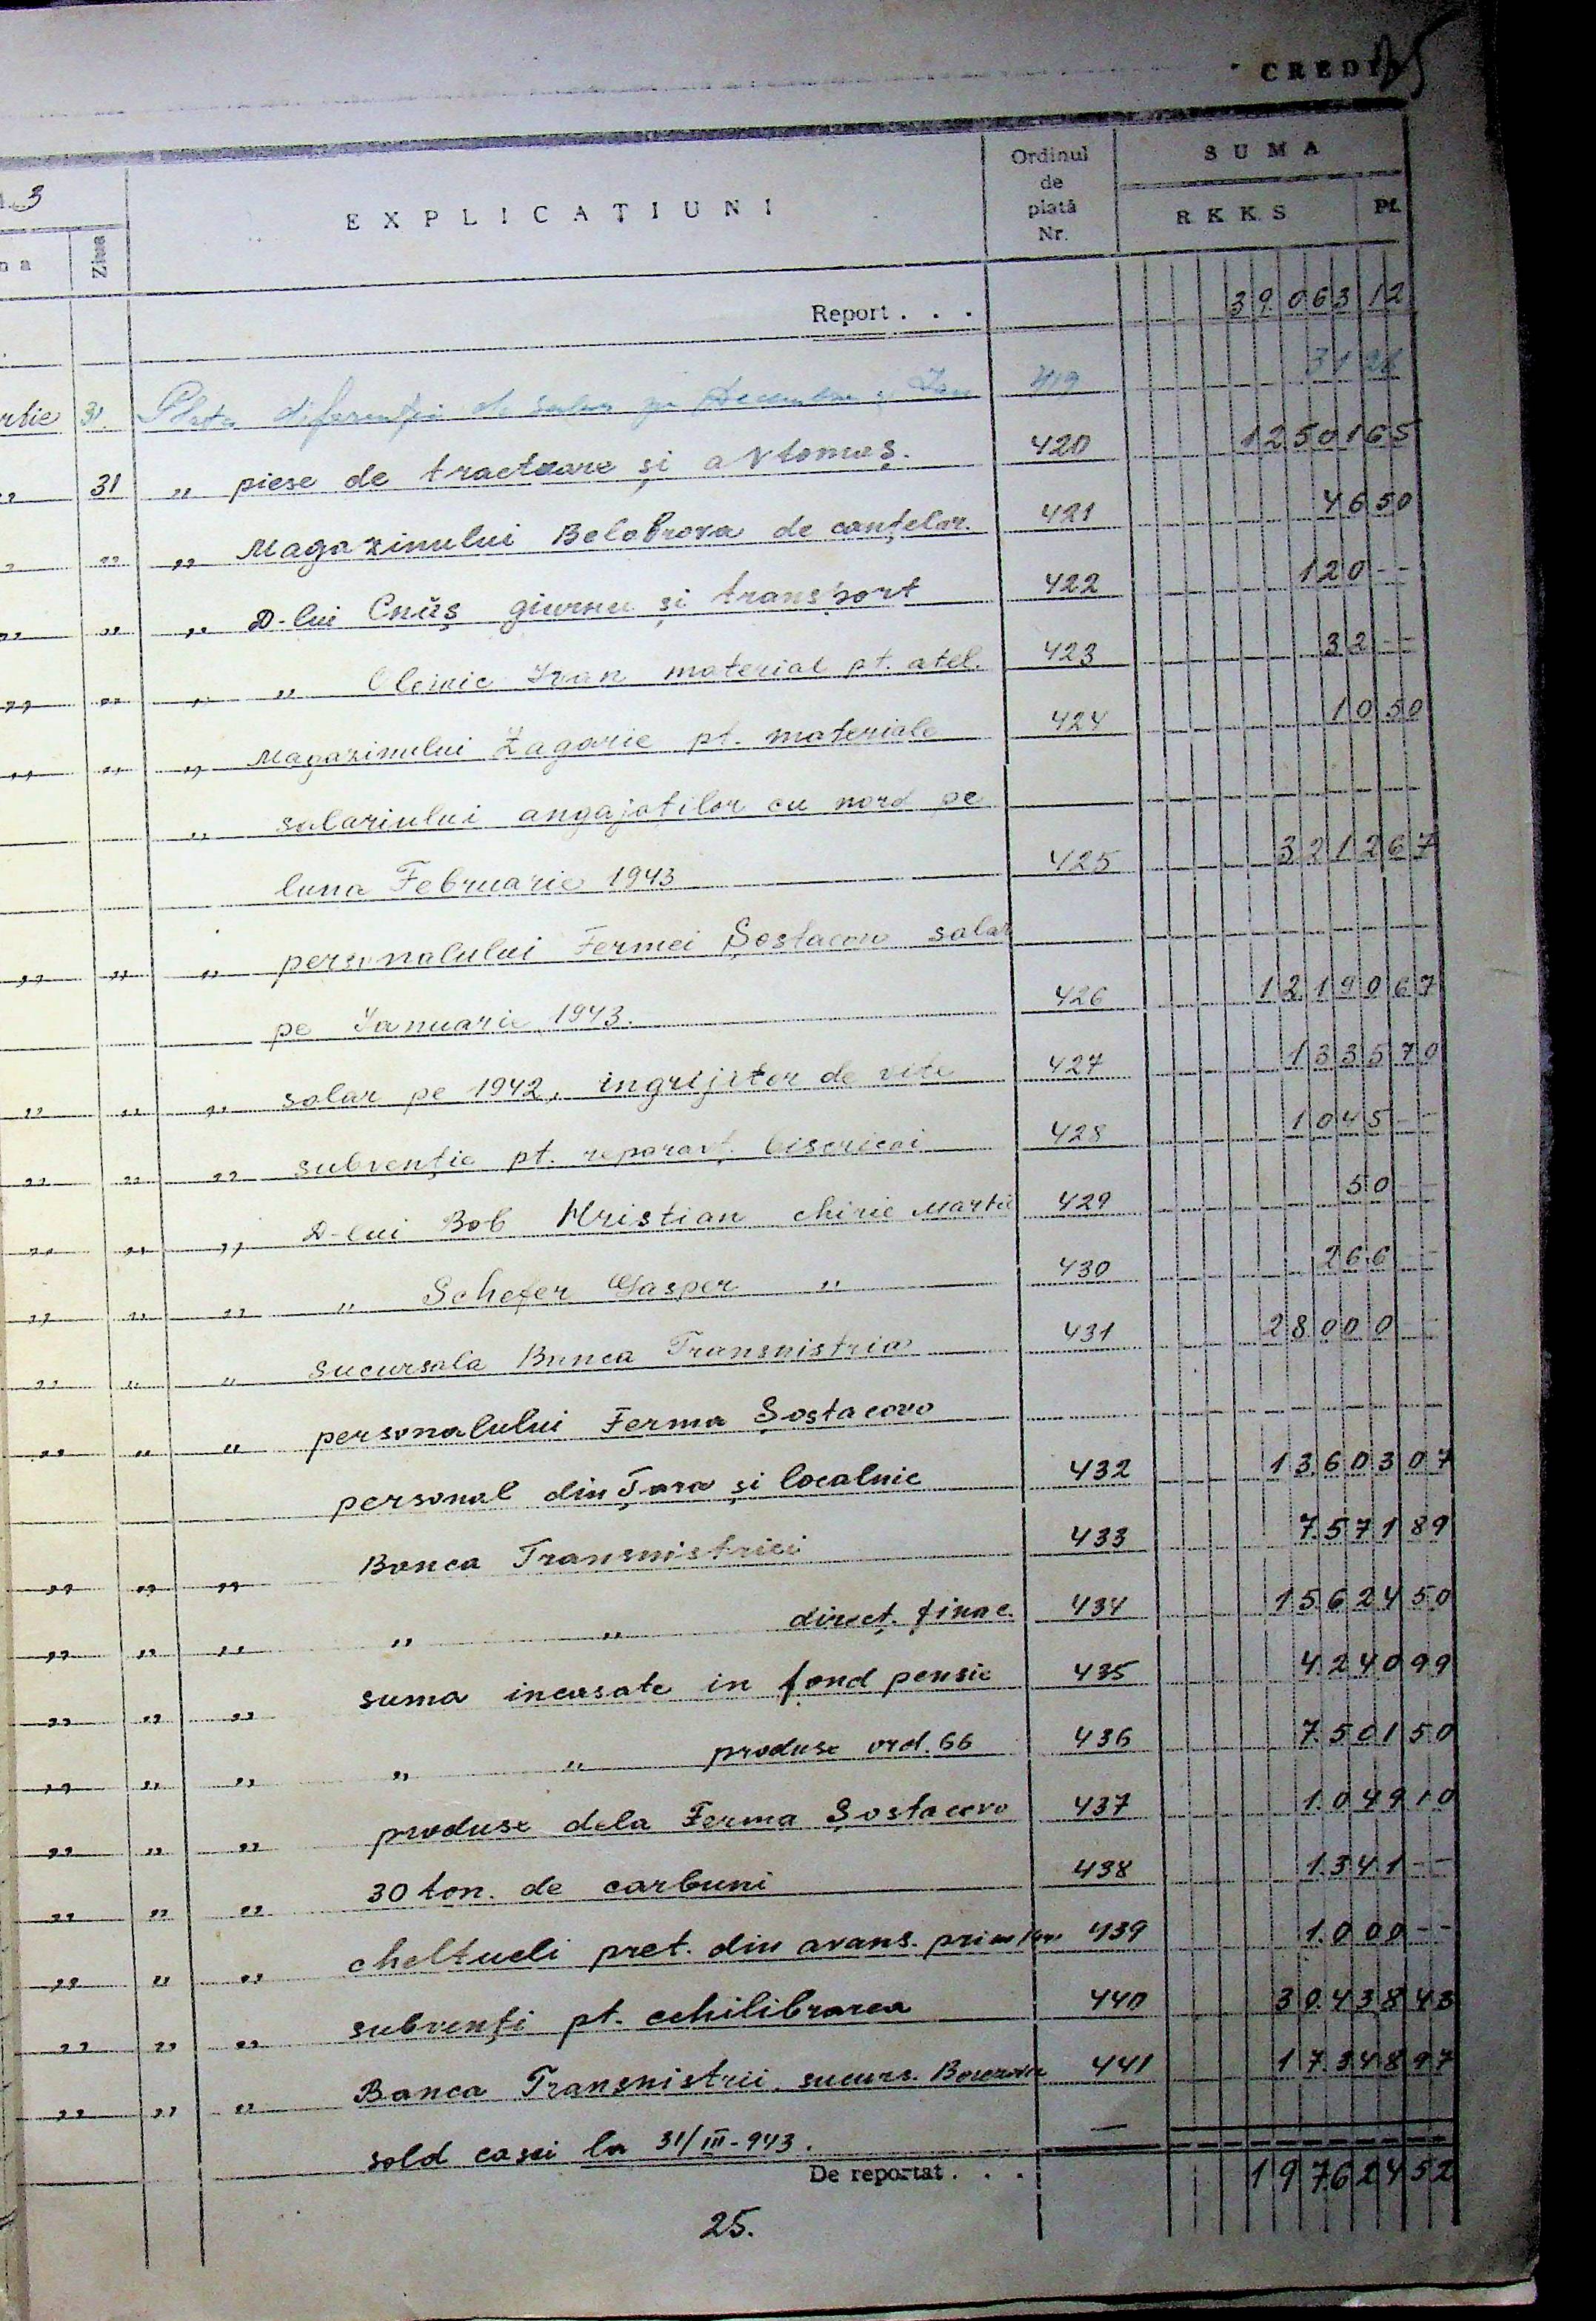 CREDIT
3
Ziua
EXPLICAȚIUNI
Ordinul de plată Nr.
SUMA
RKKS Pf.
Report . . . 39.063 12
31. Plata diferenței de salar pe Decembre și Ian 419 31 26
„ 31 „ piese de tractoare și avtomaș. 420 12501 65
„ „ „ Magazinului Belobrova de canțelar. 421 46 50
„ „ „ D-lui Cnüș giurnu și transport 422 120 --
„ „ „ „ Oleinic Ivan material pt. atel. 423 32 --
„ „ „ Magazinului Zagarie pt. materiale 424 10 50
„ salariului angajaților cu nord pe
luna Februarie 1943 425 3212 67
„ „ „ personalului Fermei Șostacovo salar
pe Ianuarie 1943. 426 12.190 67
„ „ „ salar pe 1942, ingrijitor de vite 427 1335 70
„ „ „ subvenție pt. reparaț. bisericei 428 1045 --
„ „ „ D-lui Bob Hristian chirie Martie 429 50 --
„ „ „ „ Schefer Gasper „ 430 266 --
„ „ „ sucursala Banca Transnistria 431 28000 --
„ „ „ personalului Ferma Șostacovo
personal din Țara și localnic 432 13.603 07
„ „ „ Banca Transnistriei 433 7.571 89
„ „ „ „ „ direcț. finac. 434 15.624 50
„ „ „ suma incasate in fond pensie 435 4.240 99
„ „ „ „ „ produse ord. 66 436 7.501 50
„ „ „ produse dela Ferma Șostacovo 437 1.049 10
„ „ „ 30 ton. de carbuni 438 1.341 --
„ „ „ cheltueli pret. din avans. 439 1.000 --
„ „ „ subvenți pt. echilibrarea 440 30.438 43
„ „ „ Banca Transnistrii, sucurs. 441 17348 97
sold casii la 31/III-943. —
De reportat . . . 197624 52
25.